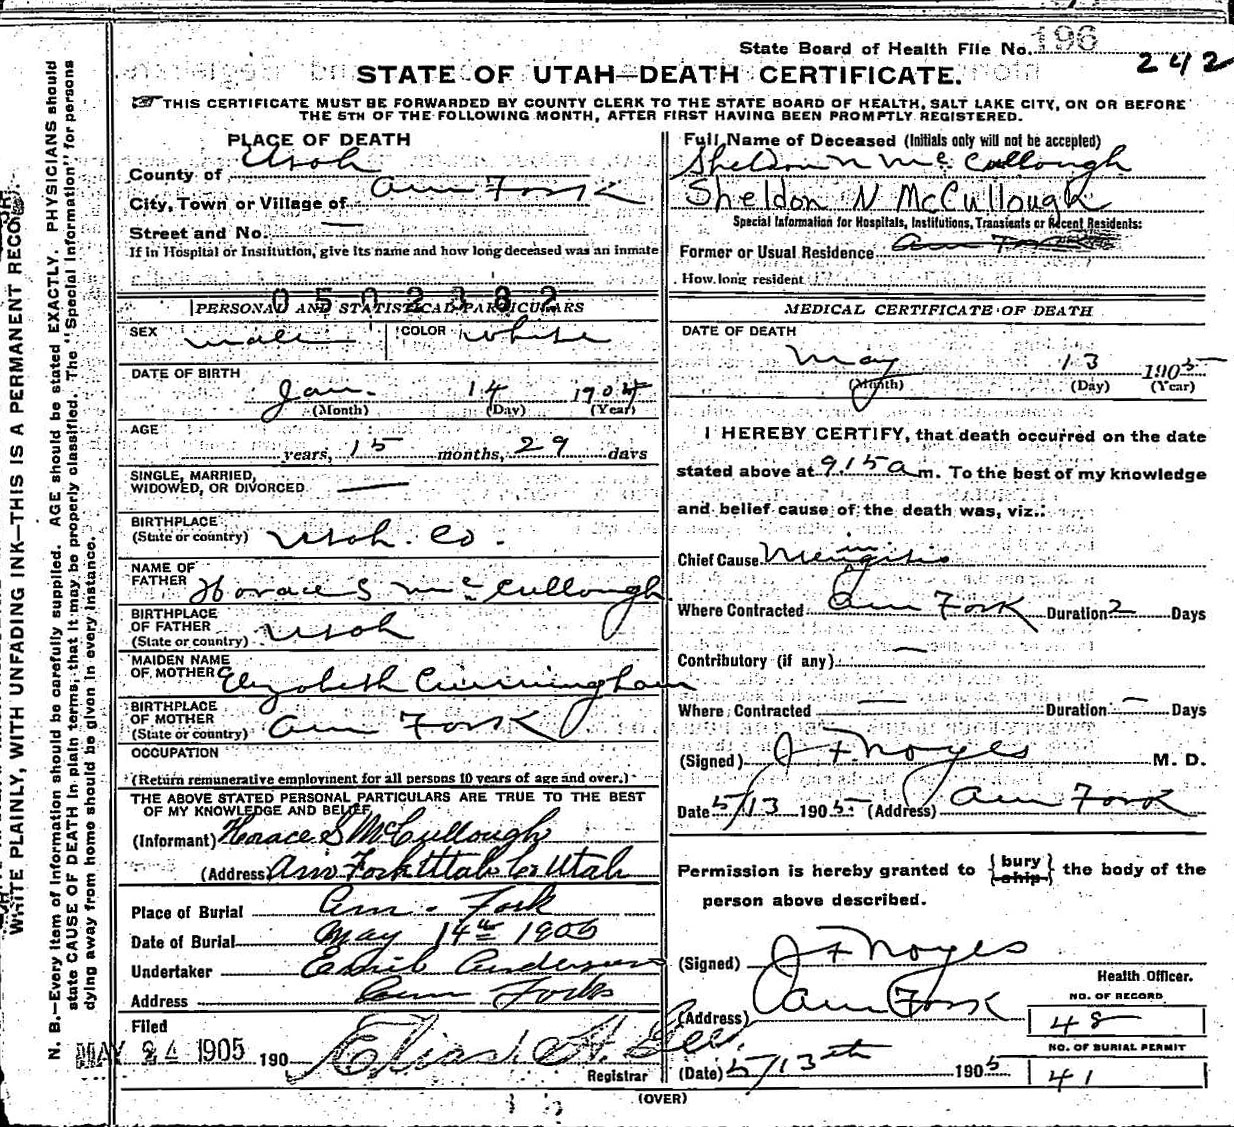 State Board of Health File No. 196
242
STATE OF UTAH—DEATH CERTIFICATE.
THIS CERTIFICATE MUST BE FORWARDED BY COUNTY CLERK TO THE STATE BOARD OF HEALTH, SALT LAKE CITY, ON OR BEFORE
THE 5TH OF THE FOLLOWING MONTH, AFTER FIRST HAVING BEEN PROMPTLY REGISTERED.
PLACE OF DEATH
County of Utah
City, Town or Village of Am Fork
Street and No. —
If in Hospital or Institution, give its name and how long deceased was an inmate
0502382
PERSONAL AND STATISTICAL PARTICULARS
SEX male COLOR white
DATE OF BIRTH
Jan. 14 1904
(Month) (Day) (Year)
AGE
years, 15 months, 29 days
SINGLE, MARRIED,
WIDOWED, OR DIVORCED —
BIRTHPLACE
(State or country) Utah. Co.
NAME OF
FATHER Horace S McCullough
BIRTHPLACE
OF FATHER
(State or country) Utah
MAIDEN NAME
OF MOTHER Elizabeth Cunningham
BIRTHPLACE
OF MOTHER
(State or country) Am Fork
OCCUPATION
(Return remunerative employment for all persons 10 years of age and over.)
THE ABOVE STATED PERSONAL PARTICULARS ARE TRUE TO THE BEST
OF MY KNOWLEDGE AND BELIEF,
(Informant) Horace S McCullough
(Address) Am Fork Utah Co Utah
Place of Burial Am. Fork
Date of Burial May 14th 1905
Undertaker Emil Anderson
Address Am Fork
Filed
MAY 24 1905 190 Elias A. Gee.
Registrar
Full Name of Deceased (Initials only will not be accepted)
Sheldon N McCullough
Sheldon N McCullough
Special Information for Hospitals, Institutions, Transients or Recent Residents:
Former or Usual Residence Am Fork
How long resident
MEDICAL CERTIFICATE OF DEATH
DATE OF DEATH
May 13 1905
(Month) (Day) (Year)
I HEREBY CERTIFY, that death occurred on the date
stated above at 9.15 a m. To the best of my knowledge
and belief cause of the death was, viz.:
Chief Cause Meningitis
Where Contracted Am Fork Duration 2 Days
Contributory (if any) —
Where Contracted — Duration — Days
(Signed) J F Noyes M. D.
Date 5/13 1905 (Address) Am Fork
Permission is hereby granted to { bury ship } the body of the
person above described.
(Signed) J F Noyes
Health Officer.
(Address) Am Fork
NO. OF RECORD
48
(Date) 5/13th 1905
NO. OF BURIAL PERMIT
41
(OVER)
WRITE PLAINLY, WITH UNFADING INK—THIS IS A PERMANENT RECORD
N. B.—Every item of information should be carefully supplied. AGE should be stated EXACTLY. PHYSICIANS should
state CAUSE OF DEATH in plain terms, that it may be properly classified. The "Special Information" for persons
dying away from home should be given in every instance.